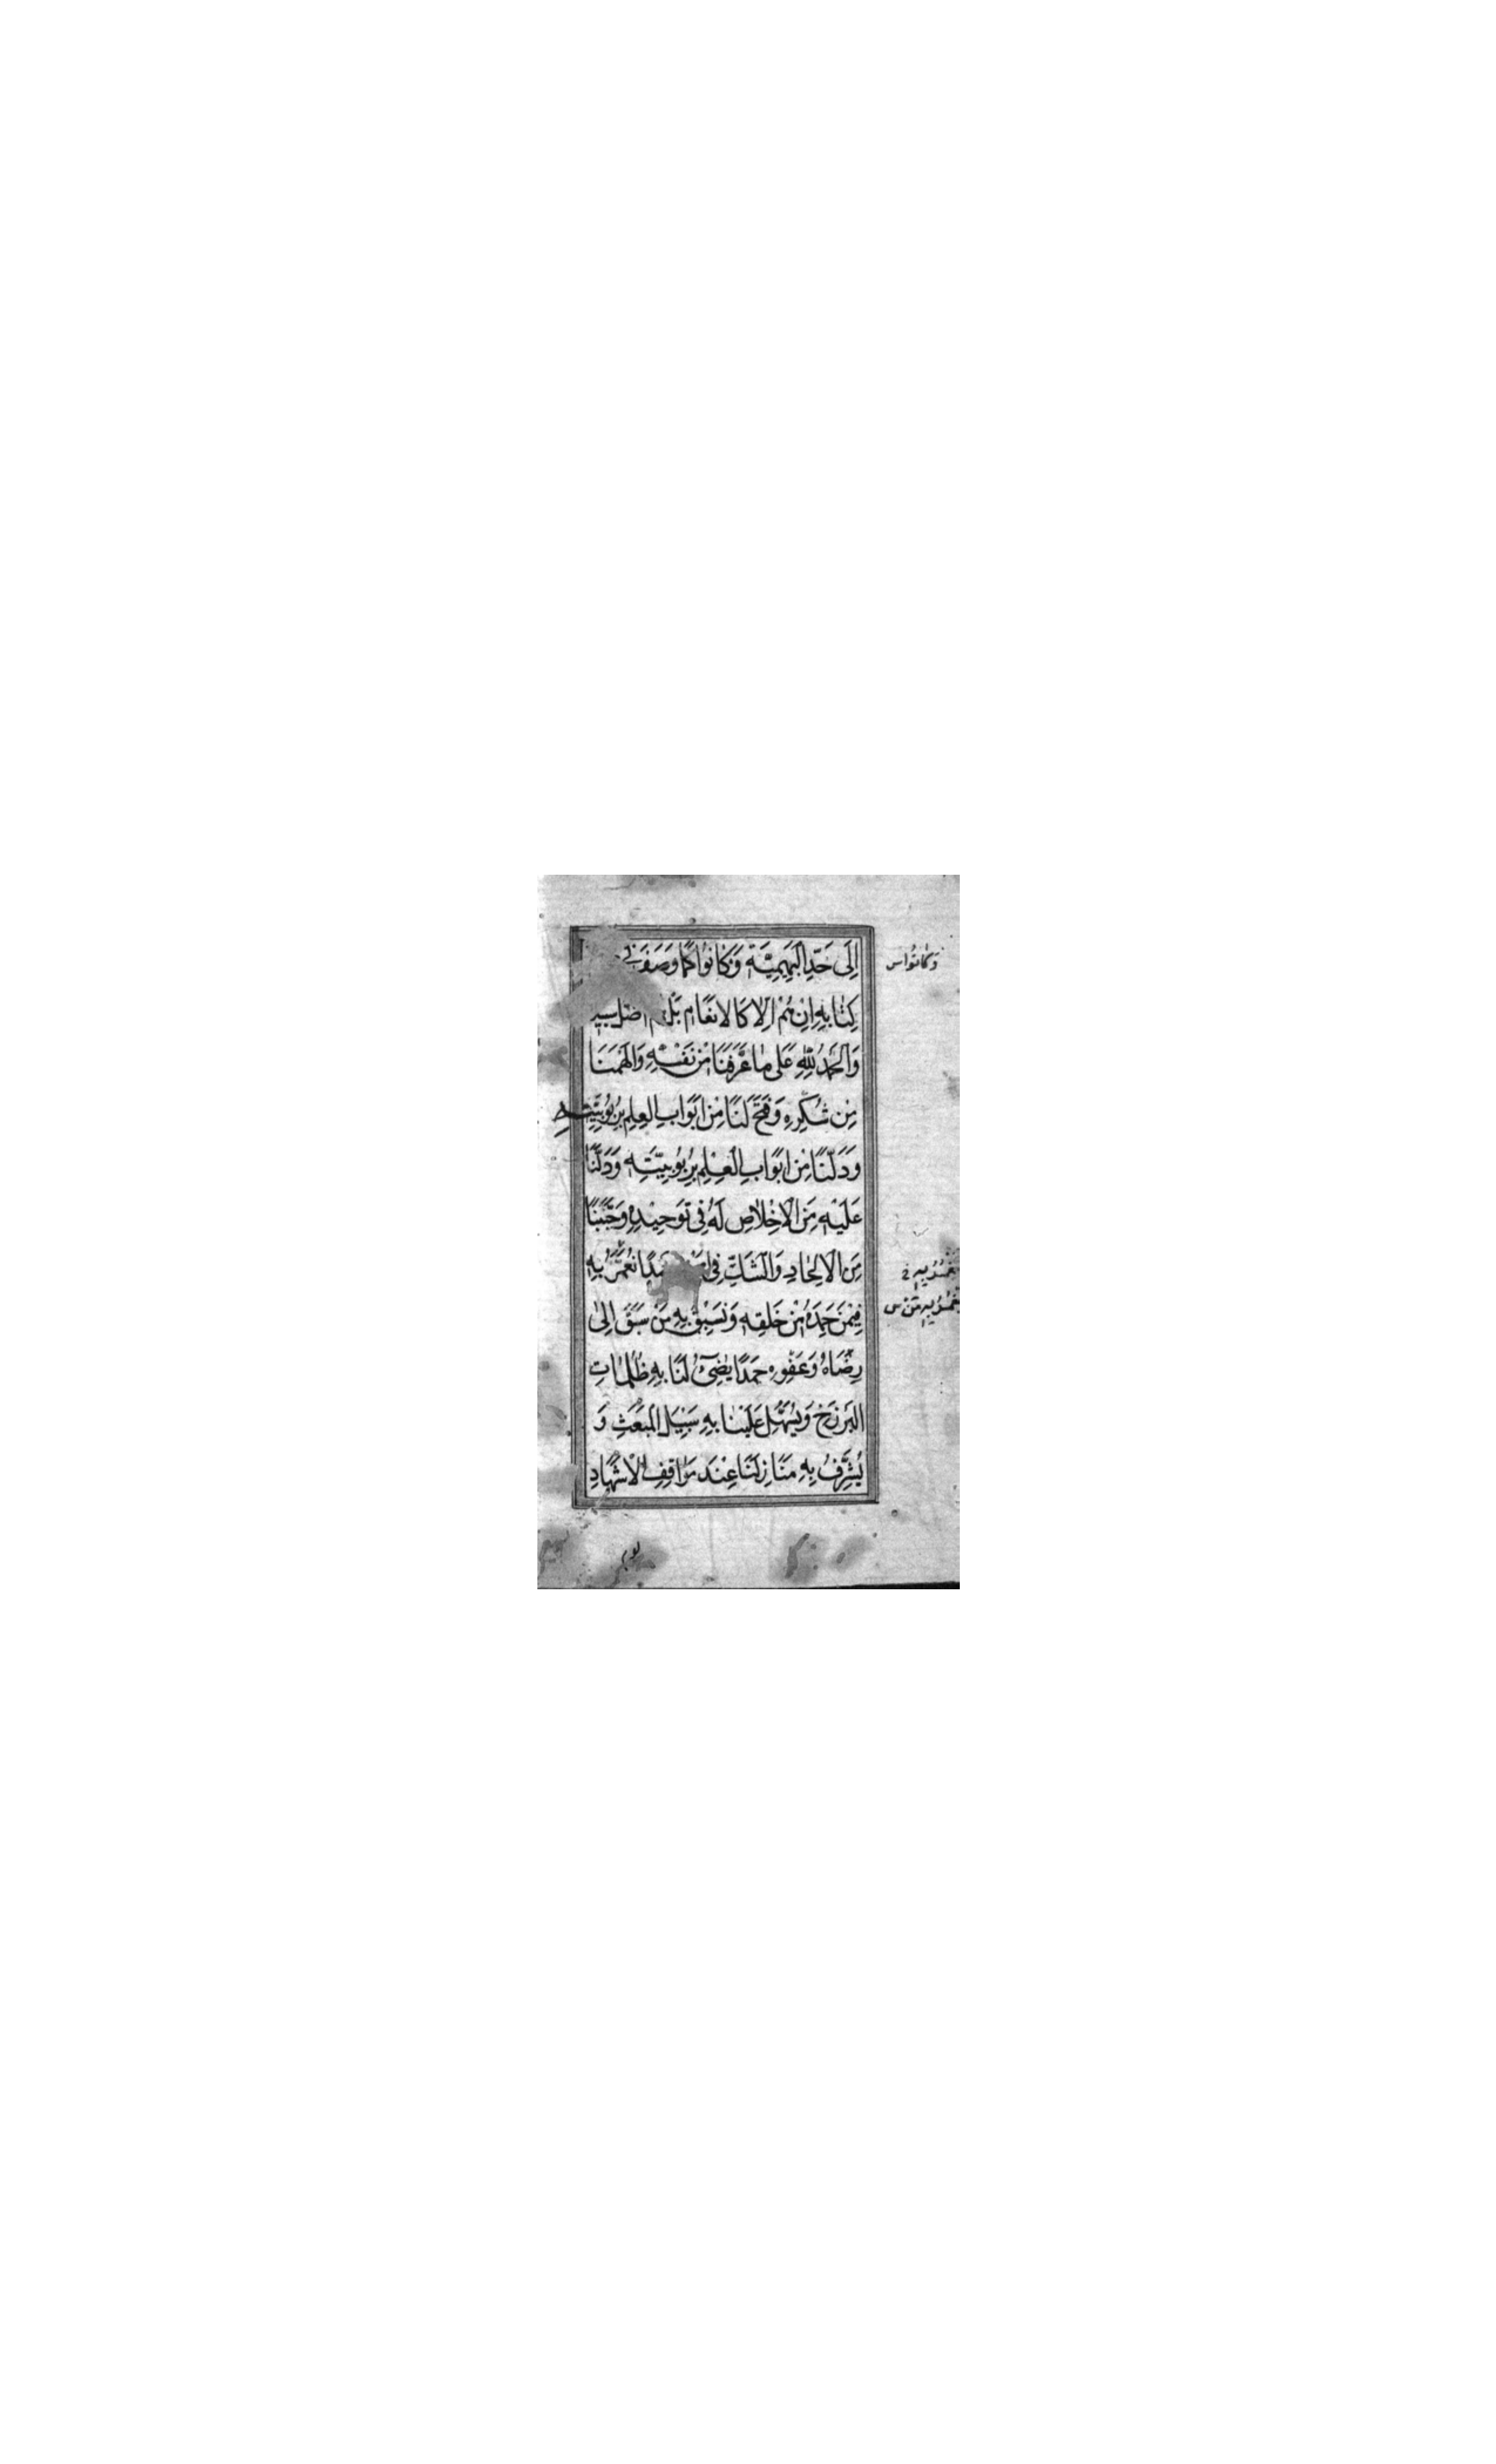 اِلَى حَدِّ الْبَهِيمِيَّةِ وَكَانُوا كَمَا وَصَفَ فِي
كِتَابِهِ اِنْ هُمْ اِلَّا كَالْاَنْعَامِ بَلْ هُمْ اَضَلُّ سَبِيلًا
وَالْحَمْدُ لِلّٰهِ عَلَى مَا عَرَّفَنَا مِنْ نَفْسِهِ وَاَلْهَمَنَا
مِنْ شُكْرِهِ وَفَتَحَ لَنَا مِنْ اَبْوَابِ الْعِلْمِ بِرُبُوبِيَّتِهِ
وَدَلَّنَا مِنْ اَبْوَابِ الْعِلْمِ بِرُبُوبِيَّتِهِ وَدَلَّنَا
عَلَيْهِ مِنَ الْاِخْلَاصِ لَهُ فِي تَوْحِيدِهِ وَجَنَّبَنَا
مِنَ الْاِلْحَادِ وَالشَّكِّ فِي حَمْدًا نُعَمَّرُ بِهِ
فِيمَنْ حَمِدَهُ مِنْ خَلْقِهِ وَنَسْبِقُ بِهِ مَنْ سَبَقَ اِلَى
رِضَاهُ وَعَفْوِهِ حَمْدًا يُضِيءُ لَنَا بِهِ ظُلُمَاتِ
الْبَرْزَخِ وَيُسَهِّلُ عَلَيْنَا بِهِ سَبِيلَ الْمَبْعَثِ وَ
يُشَرِّفُ بِهِ مَنَازِلَنَا عِنْدَ مَوَاقِفِ الْاَشْهَادِ
وَكَانُوا س
يوم